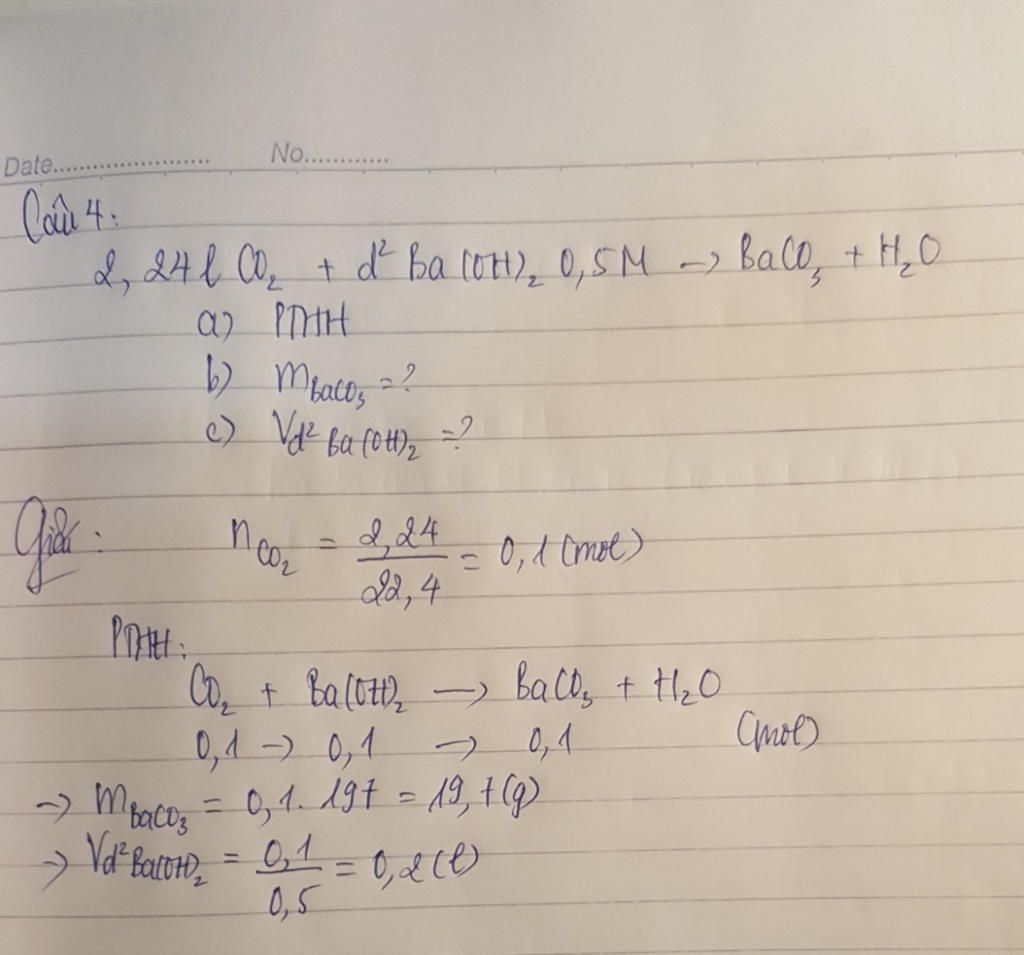 Date........................ No............
Câu 4:
2,24l CO₂ + d² Ba(OH)₂ 0,5M → BaCO₃ + H₂O
a) PTHH
b) mBaCO₃ = ?
c) Vd² Ba(OH)₂ = ?
Giải: nCO₂ = 2,24/22,4 = 0,1 (mol)
PTHH:
CO₂ + Ba(OH)₂ → BaCO₃ + H₂O
0,1 → 0,1 → 0,1 (mol)
→ mBaCO₃ = 0,1. 197 = 19,7(g)
→ Vd² Ba(OH)₂ = 0,1/0,5 = 0,2(l)